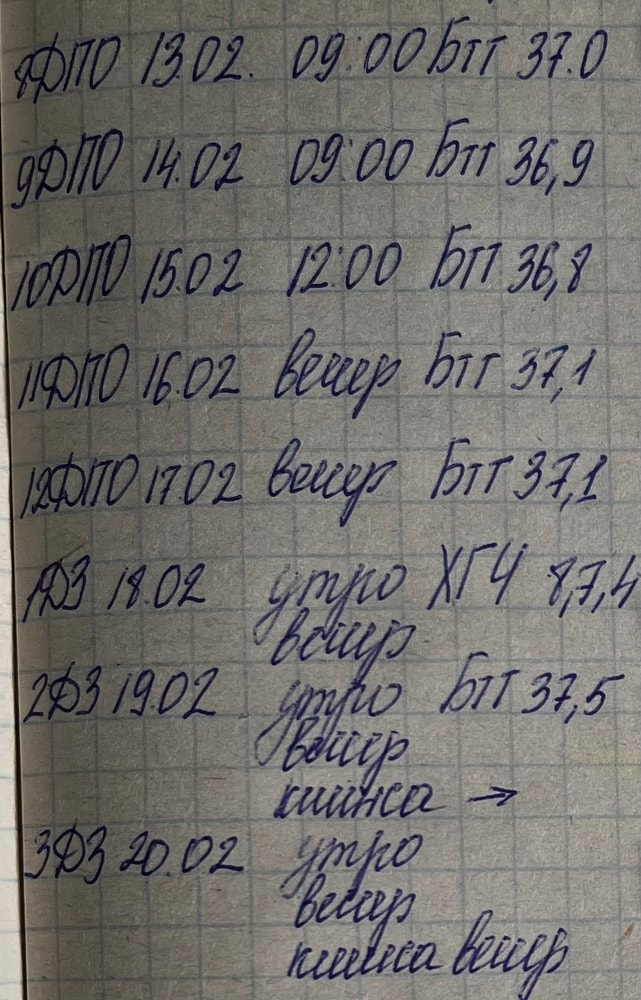 8ДПО 13.02. 09:00 БТТ 37.0
9ДПО 14.02 09:00 БТТ 36,9
10ДПО 15.02 12:00 БТТ 36,8
11ДПО 16.02 вечер БТТ 37,1
12ДПО 17.02 вечер БТТ 37,1
1ДЗ 18.02 утро ХГЧ 8,7,4
вечер
2ДЗ 19.02 утро БТТ 37,5
вечер
3ДЗ 20.02 утро
вечер
вечер